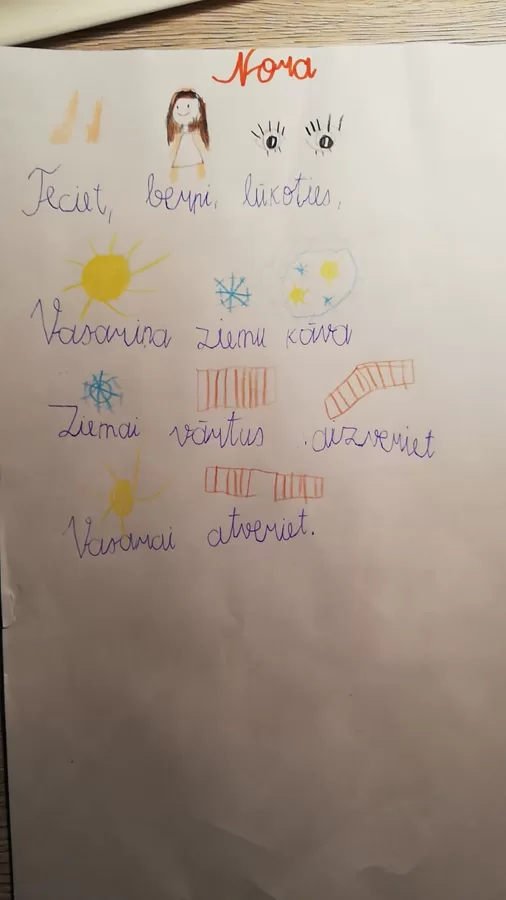 Nora
Teciet, bērni, lūkoties,
Vasariņa ziemu kāva
Ziemai vārtus aizveriet
Vasarai atveriet.